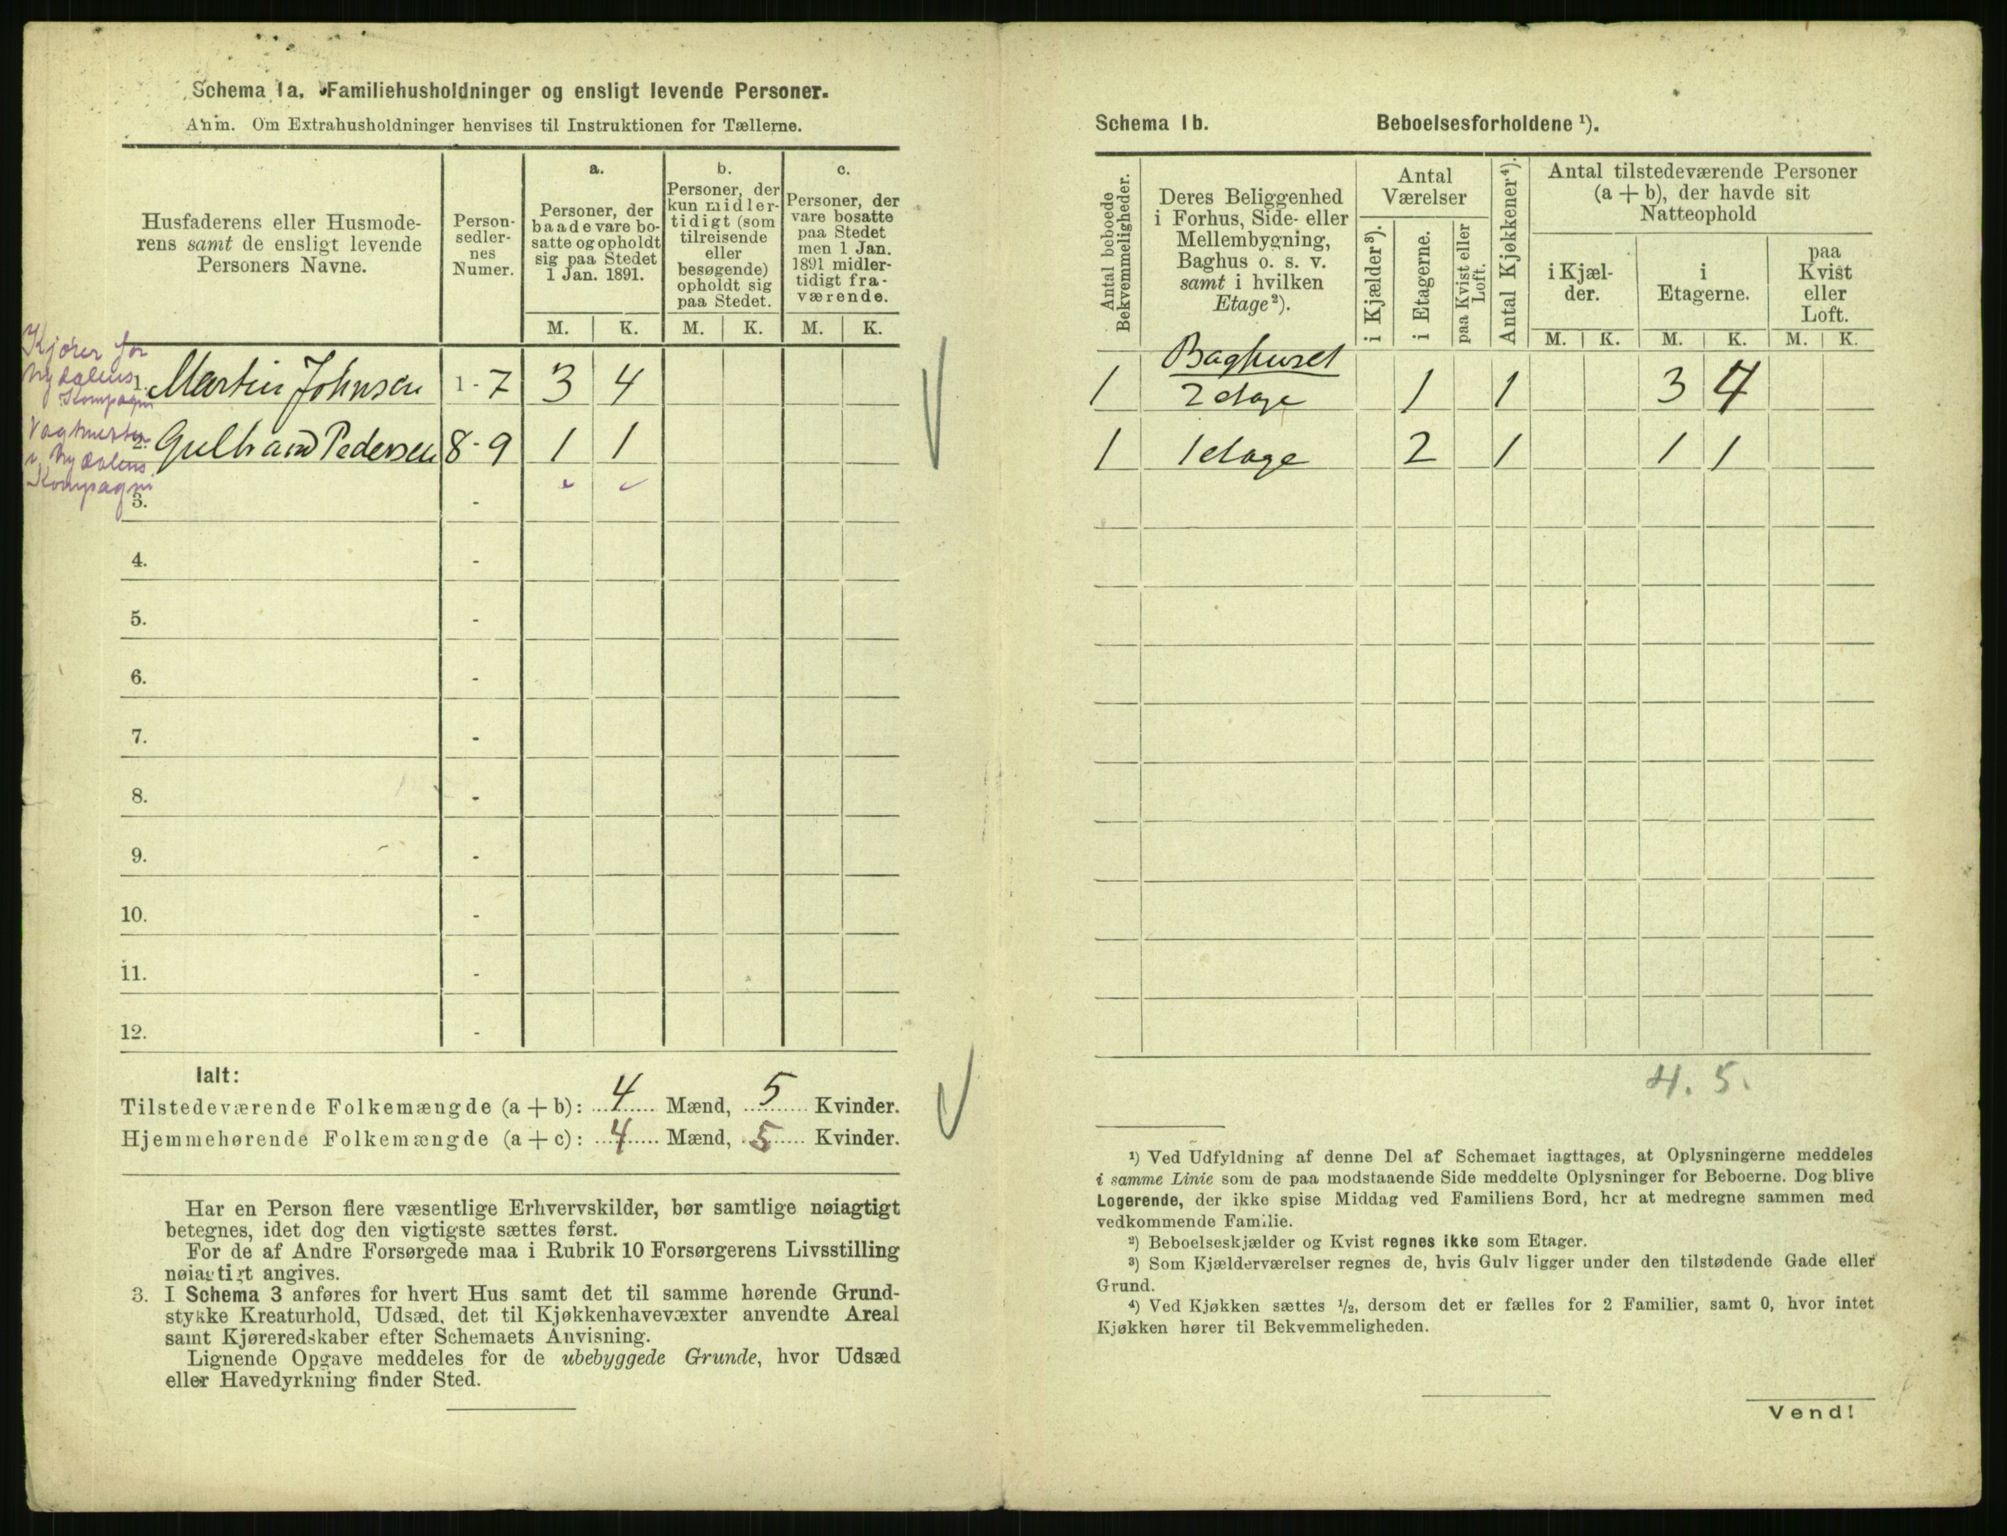 Schema 1a. Familiehusholdninger og ensligt levende Personer.
Anm. Om Extrahusholdninger henvises til Instruktionen for Tællerne.
Husfaderens eller Husmode-
rens samt de ensligt levende
Personers Navne.
Person-
sedler-
nes
Numer.
a.
Personer, der
baade vare bo-
satte og opholdt
sig paa Stedet
1 Jan. 1891.
b.
Personer, der
kun midler-
tidigt (som
tilreisende
eller
besøgende)
opholdt sig
paa Stedet.
c.
Personer, der
vare bosatte
paa Stedet
men 1 Jan.
1891 midler-
tidigt fra-
værende.
M. K. M. K. M. K.
Kjører for
Nydalens
Kompagni
1. Martin Johnsen 1 - 7 3 4
Vagtmester
i Nydalens
Kompagni
2. Gulbrand Pedersen 8 - 9 1 1
3. -
4. -
5. -
6. -
7. -
8. -
9. -
10. -
11. -
12. -
Ialt:
Tilstedeværende Folkemængde (a + b): 4 Mænd, 5 Kvinder.
Hjemmehørende Folkemængde (a + c): 4 Mænd, 5 Kvinder.
Har en Person flere væsentlige Erhvervskilder, bør samtlige nøiagtigt
betegnes, idet dog den vigtigste sættes først.
For de af Andre Forsørgede maa i Rubrik 10 Forsørgerens Livsstilling
nøiagtigt angives.
3. I Schema 3 anføres for hvert Hus samt det til samme hørende Grund-
stykke Kreaturhold, Udsæd, det til Kjøkkenhavevæxter anvendte Areal
samt Kjøreredskaber efter Schemaets Anvisning.
Lignende Opgave meddeles for de ubebyggede Grunde, hvor Udsæd
eller Havedyrkning finder Sted.
Schema 1b. Beboelsesforholdene ¹).
Antal beboede
Bekvemmeligheder.
Deres Beliggenhed
i Forhus, Side- eller
Mellembygning,
Baghus o. s. v.
samt i hvilken
Etage²).
Antal
Værelser
i Kjælder³).
i Etagerne.
paa Kvist eller
Loft.
Antal Kjøkkener⁴).
Antal tilstedeværende Personer
(a + b), der havde sit
Natteophold
i Kjæl-
der.
i
Etagerne.
paa
Kvist
eller
Loft.
M. K. M. K. M. K.
Baghuset
1 2 etage 1 1 3 4
1 1 etage 2 1 1 1
4. 5.
¹) Ved Udfyldning af denne Del af Schemaet iagttages, at Oplysningerne meddeles
i samme Linie som de paa modstaaende Side meddelte Oplysninger for Beboerne. Dog blive
Logerende, der ikke spise Middag ved Familiens Bord, her at medregne sammen med
vedkommende Familie.
²) Beboelseskjælder og Kvist regnes ikke som Etager.
³) Som Kjælderværelser regnes de, hvis Gulv ligger under den tilstødende Gade eller
Grund.
⁴) Ved Kjøkken sættes ½, dersom det er fælles for 2 Familier, samt 0, hvor intet
Kjøkken hører til Bekvemmeligheden.
Vend!